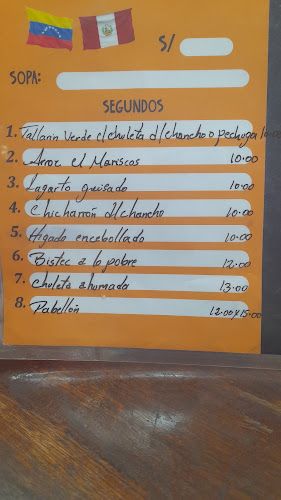 S/
SOPA:
SEGUNDOS
1. Tallarin Verde c/chuleta d/chancho o pechuga 10.00
2. Arroz c/ Mariscos 10.00
3. Lagarto guisado 10.00
4. Chicharrón d/chancho 10.00
5. Higado encebollado 10.00
6. Bistec a lo pobre 12.00
7. chuleta ahumada 13.00
8. Pabellón 12.00 y 15.00